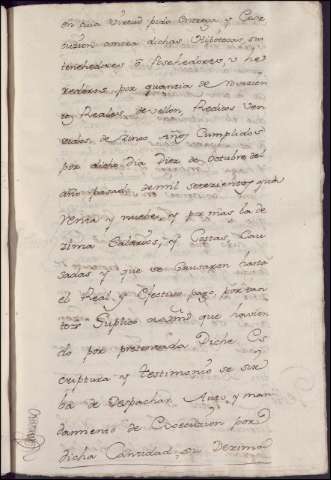 en cuia virtud pido Entrega y Exe
cuzion contra dichas Hipotecas, sus
tenehedores ô Poseheedores, y he
rederos por quantia de novecien
tos Reales de vellon Reditos Ven
cidos de Zinco Años Cumplidos
por dicho dia diez de Octubre del
año pasado de mil setezientos qua
renta y nueve, y por mas la de
zima Salarios, y Costas Cau
sadas y que se Causaren hasta
el Real y Efectivo pago, por tan
to= Suplico a vmd que havien
do por presentada Dicha Es
criptura y testimonio se sir
ba de Despachar Auto, y man
damiento de Execuzion por
dicha Cantidad, su Dezima